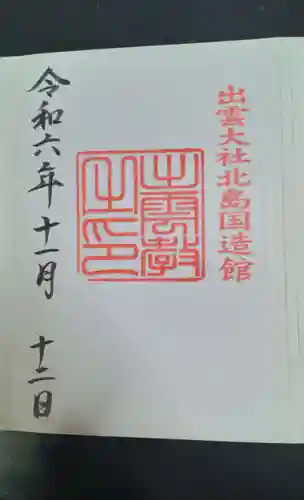 出雲大社北島国造館
出雲教之印
令和六年十一月十二日